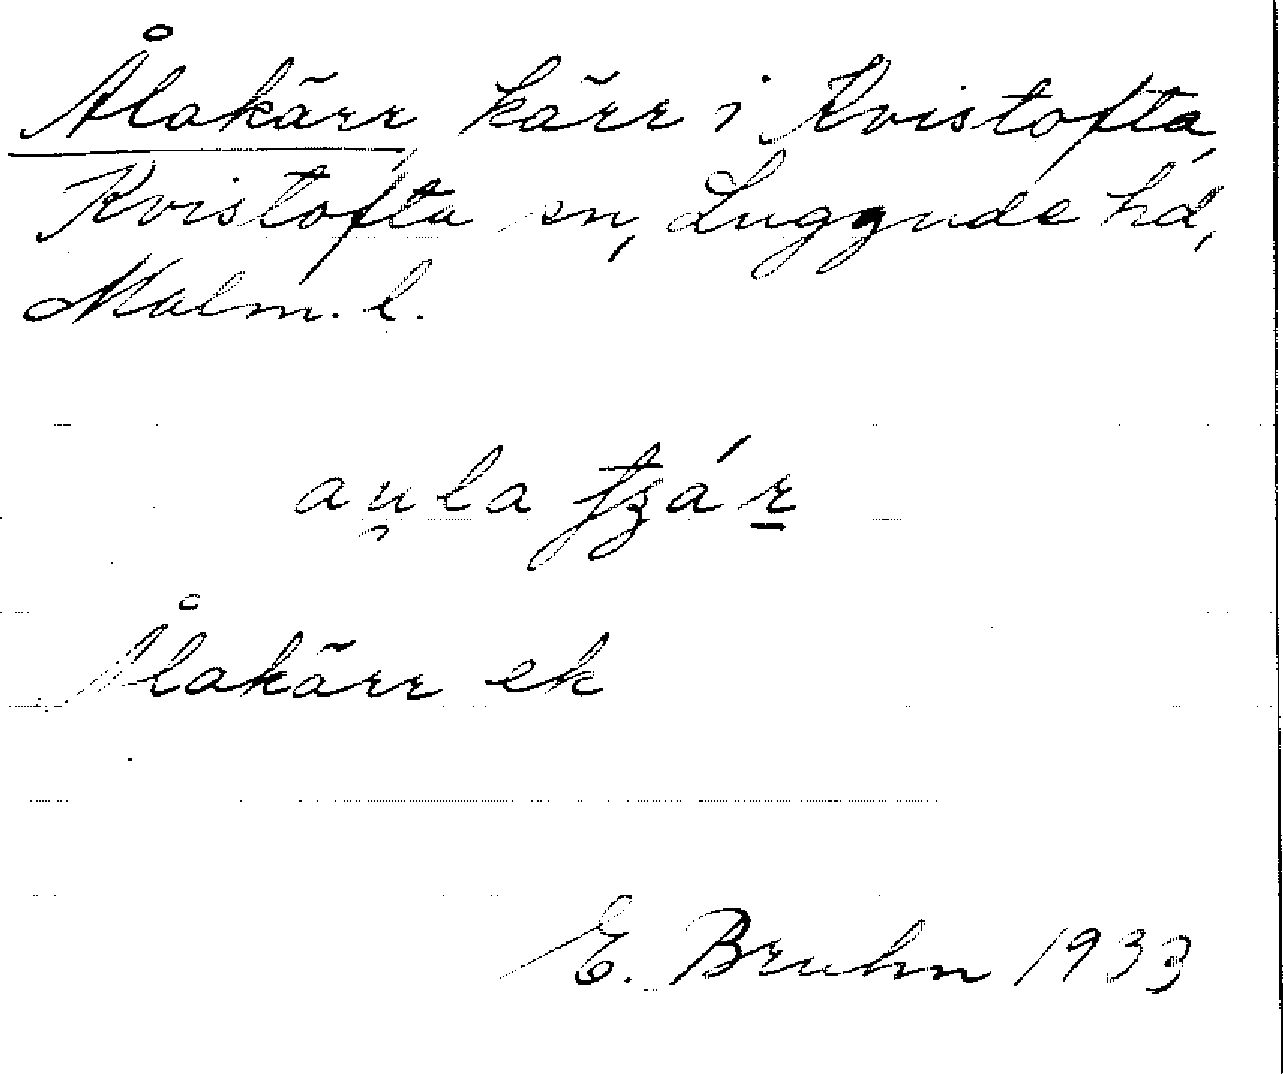 Ålakärr kärr i Kvistofta,
Kvistofta sn, Luggude hd,
Malm. l.
Ålakärr ek
E. Bruhn 1933